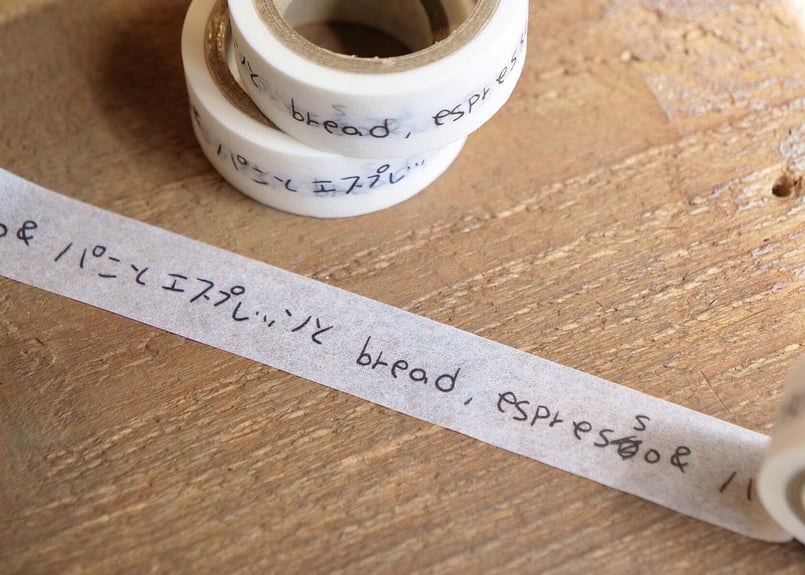 と bread, espres
パンと エスプレッ
o& パンと エスプレッソと bread, espresso &